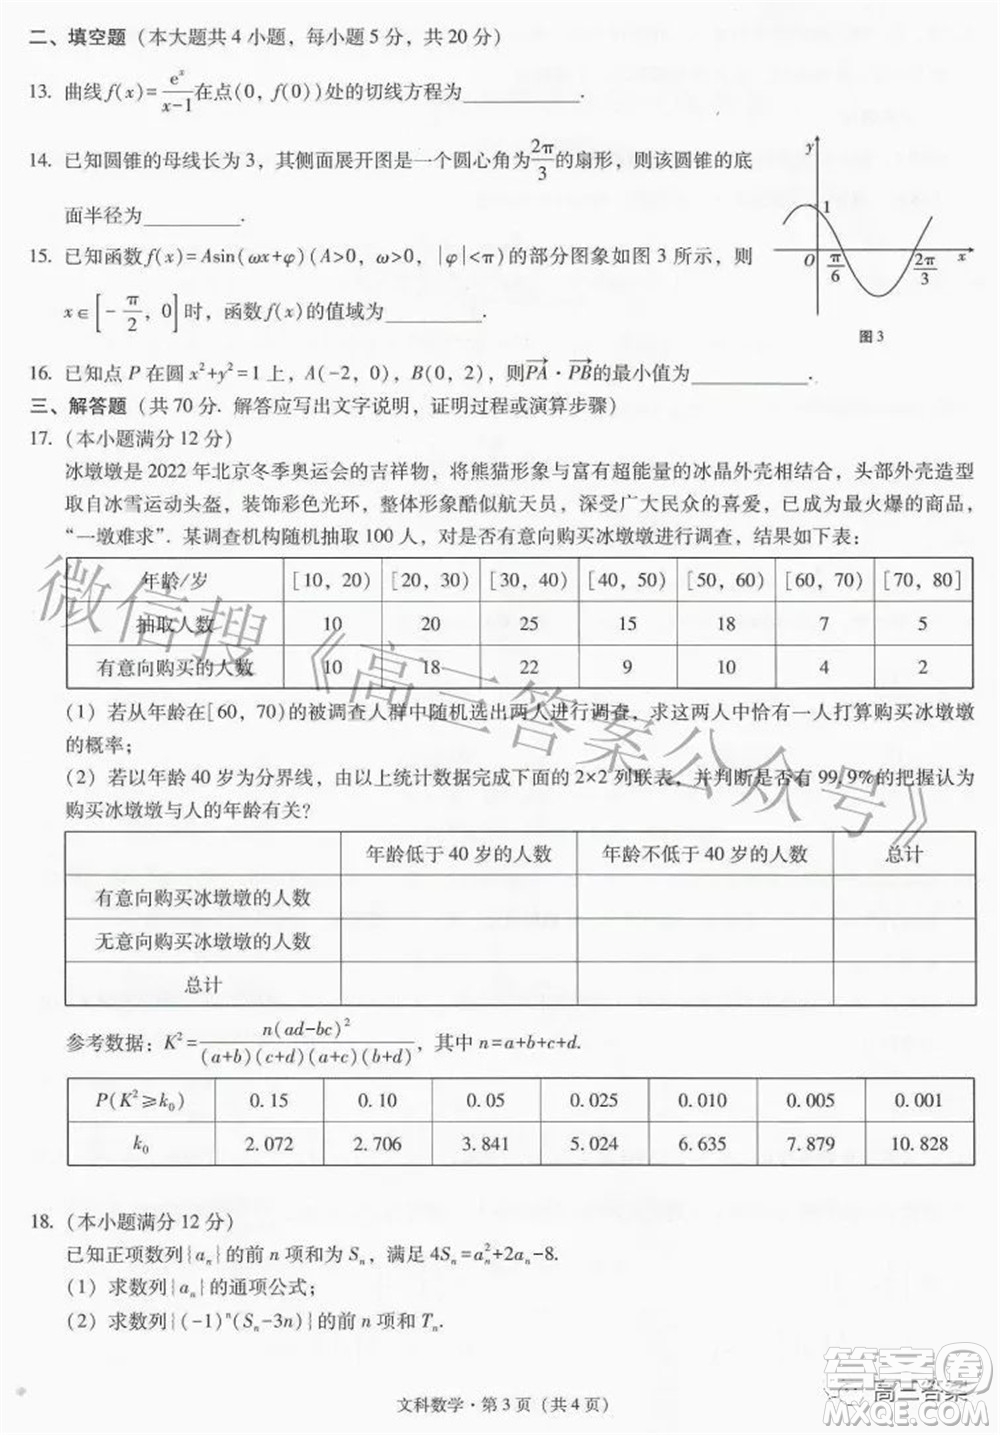 二、填空题（本大题共 4 小题，每小题 5 分，共 20 分）
13. 曲线 f(x)=e^x/(x-1) 在点(0, f(0))处的切线方程为__________.
14. 已知圆锥的母线长为 3，其侧面展开图是一个圆心角为 2π/3 的扇形，则该圆锥的底
面半径为________.
15. 已知函数 f(x)=Asin(ωx+φ)(A>0, ω>0, |φ|<π)的部分图象如图 3 所示，则
x∈[-π/2, 0]时，函数 f(x)的值域为________.
y
1
O
π/6
2π/3
x
图 3
16. 已知点 P 在圆 x²+y²=1 上，A(-2, 0)，B(0, 2)，则PA→·PB→的最小值为__________.
三、解答题（共 70 分. 解答应写出文字说明，证明过程或演算步骤）
17.（本小题满分 12 分）
冰墩墩是 2022 年北京冬季奥运会的吉祥物，将熊猫形象与富有超能量的冰晶外壳相结合，头部外壳造型
取自冰雪运动头盔，装饰彩色光环，整体形象酷似航天员，深受广大民众的喜爱，已成为最火爆的商品，
“一墩难求”. 某调查机构随机抽取 100 人，对是否有意向购买冰墩墩进行调查，结果如下表：
年龄/岁 [10, 20) [20, 30) [30, 40) [40, 50) [50, 60) [60, 70) [70, 80]
抽取人数 10 20 25 15 18 7 5
有意向购买的人数 10 18 22 9 10 4 2
(1) 若从年龄在[60, 70)的被调查人群中随机选出两人进行调查，求这两人中恰有一人打算购买冰墩墩
的概率；
(2) 若以年龄 40 岁为分界线，由以上统计数据完成下面的 2×2 列联表，并判断是否有 99.9%的把握认为
购买冰墩墩与人的年龄有关?
年龄低于 40 岁的人数 年龄不低于 40 岁的人数 总计
有意向购买冰墩墩的人数
无意向购买冰墩墩的人数
总计
参考数据：K²=n(ad-bc)²/((a+b)(c+d)(a+c)(b+d))，其中 n=a+b+c+d.
P(K²≥k₀) 0.15 0.10 0.05 0.025 0.010 0.005 0.001
k₀ 2.072 2.706 3.841 5.024 6.635 7.879 10.828
18.（本小题满分 12 分）
已知正项数列{aₙ}的前 n 项和为 Sₙ，满足 4Sₙ=aₙ²+2aₙ-8.
(1) 求数列{aₙ}的通项公式；
(2) 求数列{(-1)ⁿ(Sₙ-3n)}的前 n 项和 Tₙ.
文科数学·第 3 页（共 4 页）
微信搜《高三答案公众号》
高三答案
答案圈
MXQE.COM